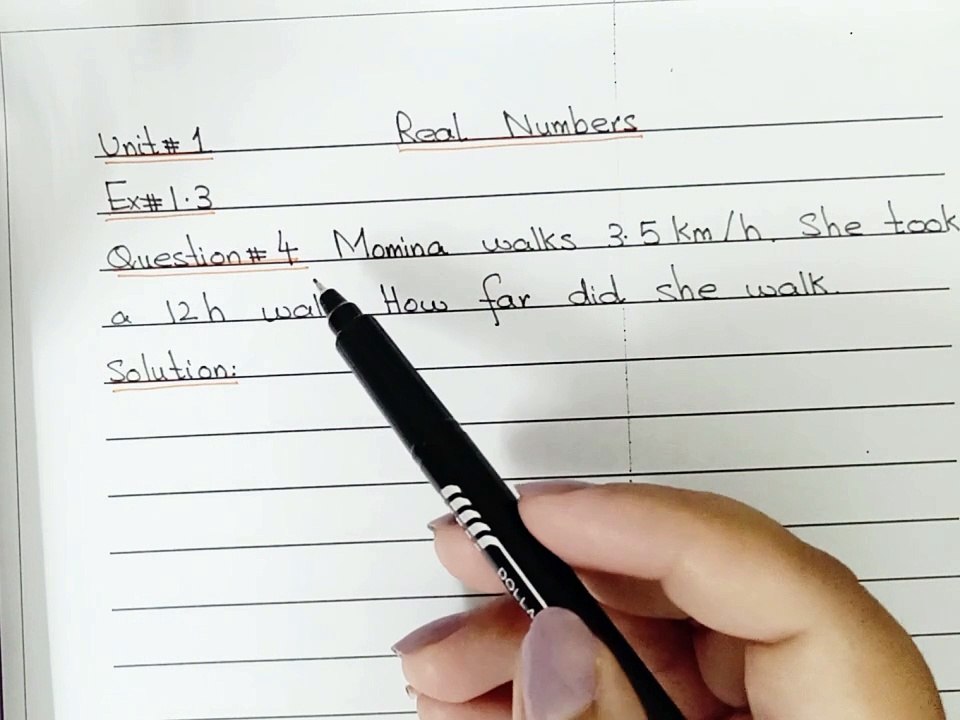 Unit# 1 Real Numbers
Ex# 1.3
Question# 4 Momina walks 3.5 km/h. She took
a 12h wal How far did she walk.
Solution:
DOLLA